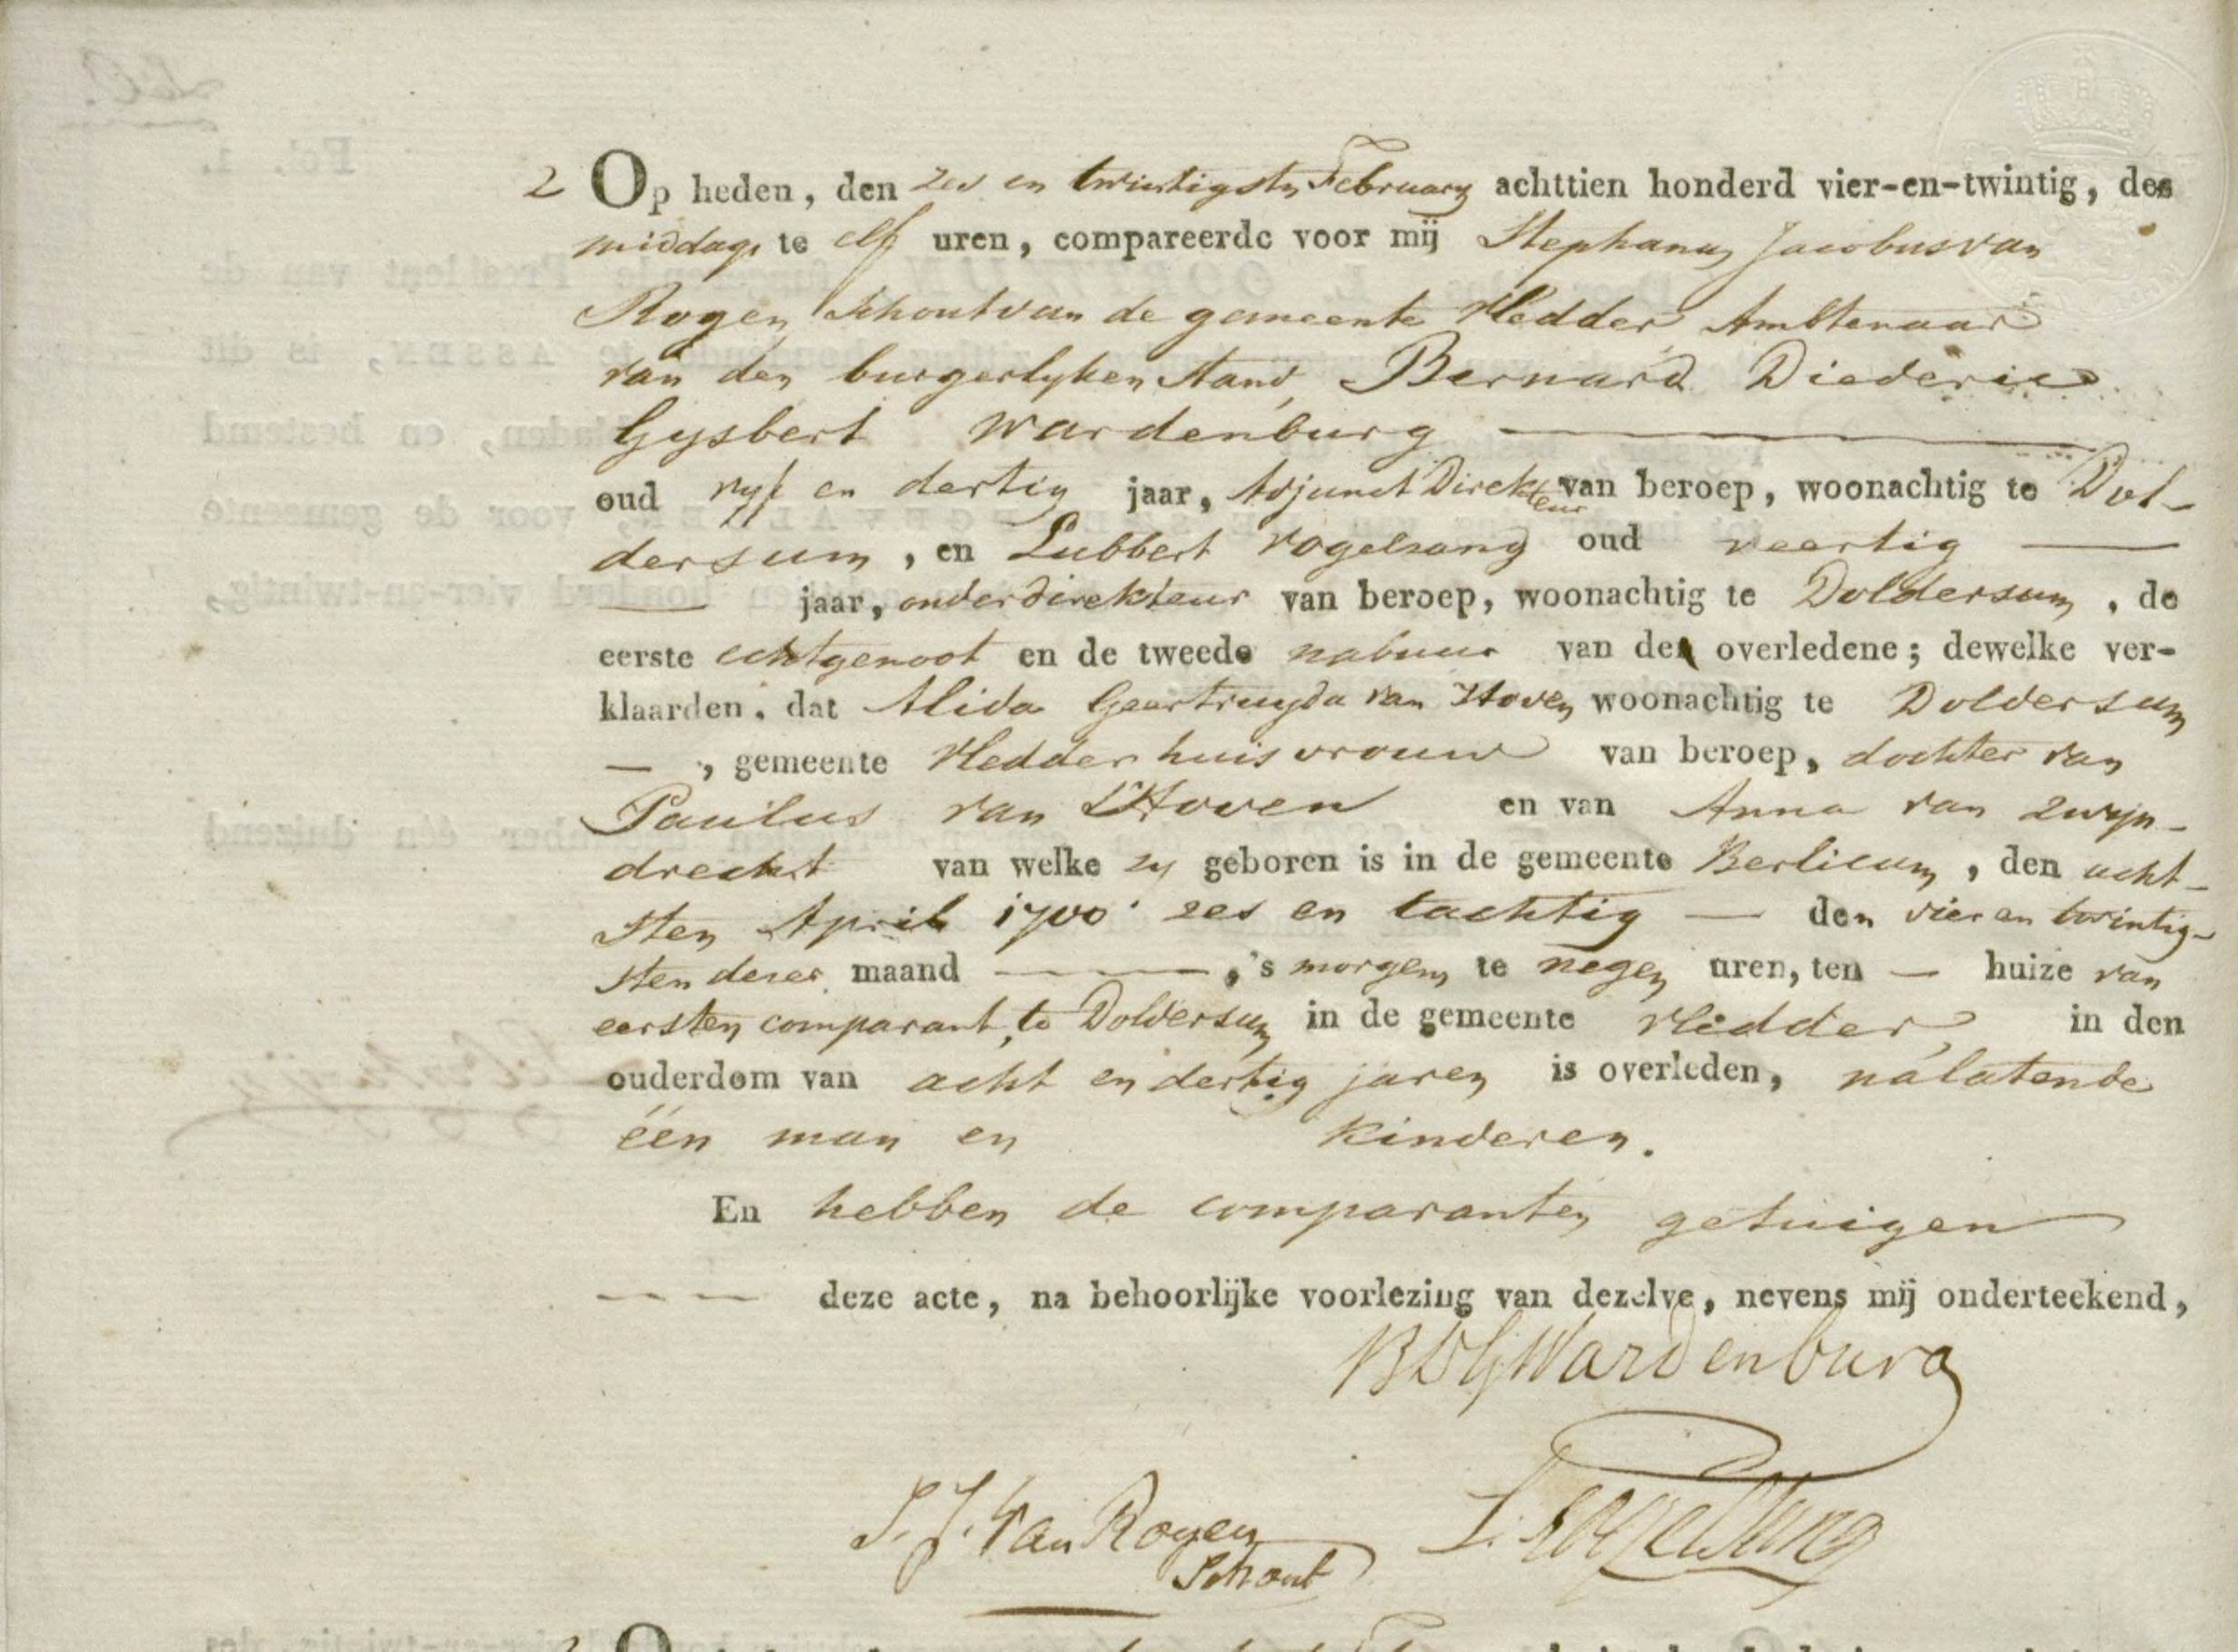 2 Op heden, den zes en twintigsten February achttien honderd vier-en-twintig, des
middags te elf uren, compareerde voor mij Stephanus Jacobus van
Royen Schout van de gemeente Vledder Ambtenaar
van den burgerlyken Stand, Bernard Diederic
Gysbert Wardenburg
oud vyf en dertig jaar, Adjunct Direkteur van beroep, woonachtig te Dol-
dersum, en Lubbert Vogelsang oud veertig
jaar, onderdirekteur van beroep, woonachtig te Doldersum, de
eerste echtgenoot en de tweede nabuur van de overledene; dewelke ver-
klaarden, dat Alida Geertruyda van Hoven woonachtig te Doldersum
—, gemeente Vledder huisvrouw van beroep, dochter van
Paulus van Hoven en van Anna van Zwyn-
drecht van welke zy geboren is in de gemeente Berlicum, den acht-
sten April 1700 zes en tachtig — den vier en twintig-
sten dezer maand —, 's morgens te negen uren, ten — huize van
eersten comparant, te Doldersum in de gemeente Vledder, in den
ouderdom van acht en dertig jaren is overleden, nalatende
één man en kinderen.
En hebben de comparanten getuigen
--- deze acte, na behoorlijke voorlezing van dezelve, nevens mij onderteekend,
BDGWardenburg
S. J. Van Royen L. Vogelsang
Schout